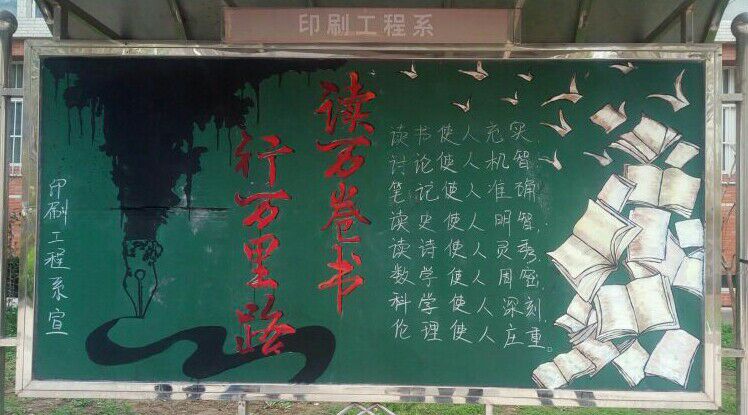 印刷工程系
读万卷书
行万里路
读书使人充实，
讨论使人机智，
笔记使人准确，
读史使人明智，
读诗使人灵秀，
数学使人周密，
科学使人深刻，
伦理使人庄重。
印刷工程系宣